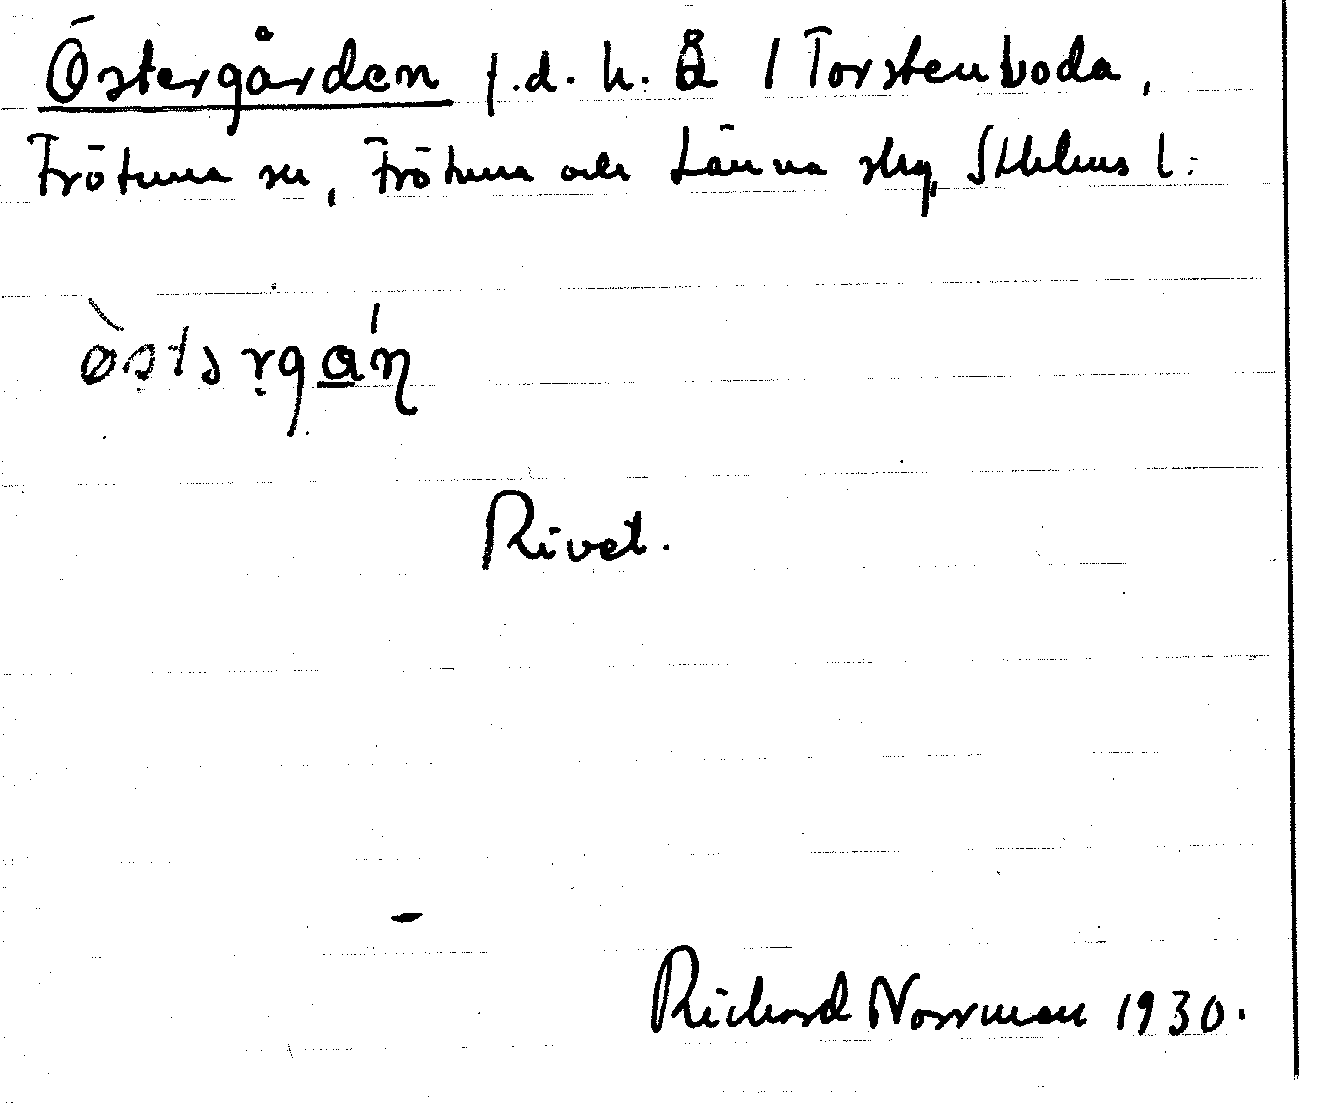 Östergården f.d. h. Å / Torstenboda,
Frötuna sn, Frötuna och Länna skg, Sthlms l.
Rivet.
Richard Norrman 1930.